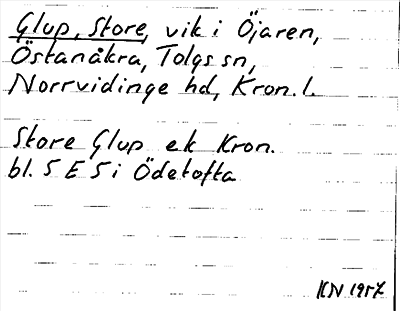 Glup, Store, vik i Öjaren,
Östanåkra, Tolgs sn,
Norrvidinge hd, Kron. l.
Store Glup ek Kron.
bl. 5 E 5 i Ödetofta
KN 1957